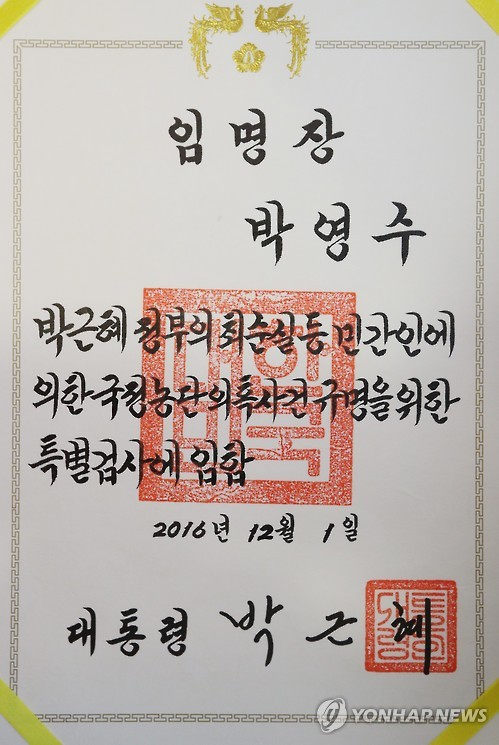 임명장
박영수
박근혜 정부의 최순실 등 민간인에
의한 국정농단 의혹사건 규명을 위한
특별검사에 임함
대한
민국
2016년 12월 1일
대통령 박근혜
YONHAPNEWS